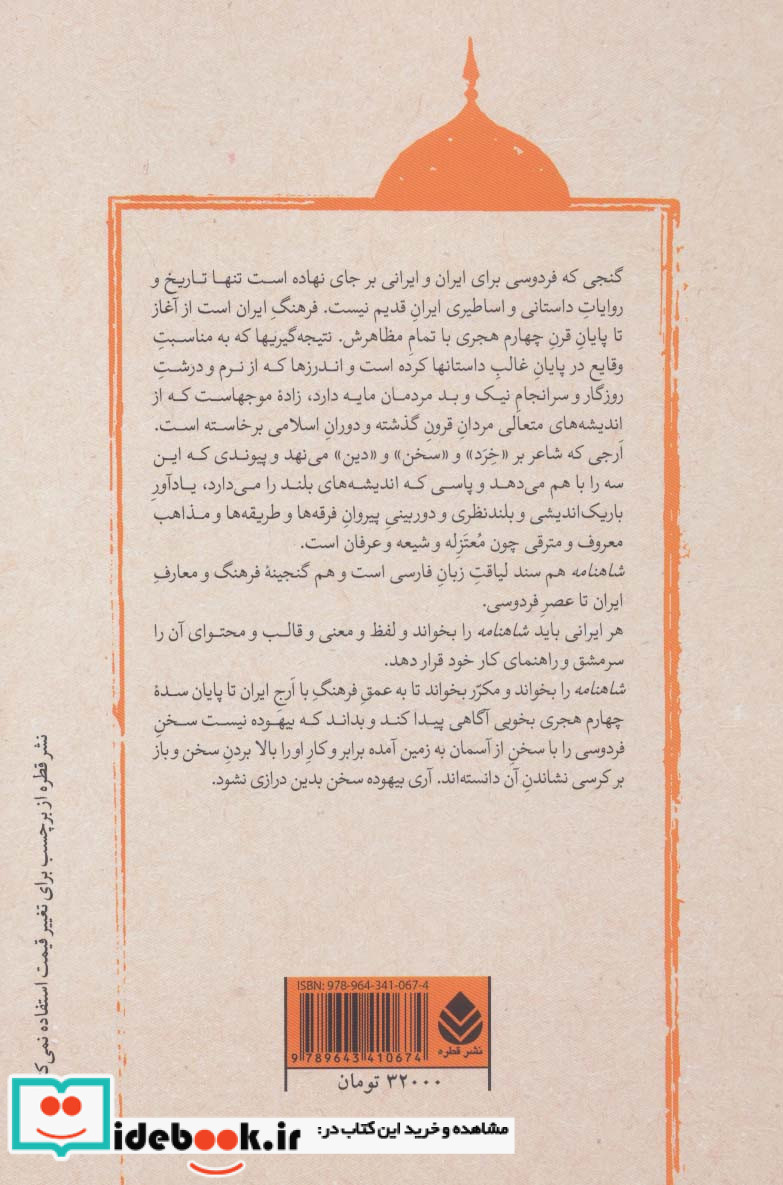 گنجی که فردوسی برای ایران و ایرانی بر جای نهاده است تنها تاریخ و
روایاتِ داستانی و اساطیری ایرانِ قدیم نیست. فرهنگِ ایران است از آغاز
تا پایانِ قرنِ چهارم هجری با تمامِ مظاهرش. نتیجه‌گیریها که به مناسبتِ
وقایع در پایانِ غالبِ داستانها کرده است و اندرزها که از نرم و درشتِ
روزگار و سرانجامِ نیک و بد مردمان مایه دارد، زادهٔ موجهاست که از
اندیشه‌های متعالی مردانِ قرونِ گذشته و دورانِ اسلامی برخاسته است.
اَرجی که شاعر بر «خِرَد» و «سخن» و «دین» می‌نهد و پیوندی که این
سه را با هم می‌دهد و پاسی که اندیشه‌های بلند را می‌دارد، یادآورِ
باریک‌اندیشی و بلندنظری و دوربینیِ پیروانِ فرقه‌ها و طریقه‌ها و مذاهب
معروف و مترقی چون مُعتَزِله و شیعه و عرفان است.
شاهنامه هم سند لیاقتِ زبانِ فارسی است و هم گنجینهٔ فرهنگ و معارفِ
ایران تا عصرِ فردوسی.
هر ایرانی باید شاهنامه را بخواند و لفظ و معنی و قالب و محتوای آن را
سرمشق و راهنمای کار خود قرار دهد.
شاهنامه را بخواند و مکرّر بخواند تا به عمقِ فرهنگِ با اَرجِ ایران تا پایان سدهٔ
چهارم هجری بخوبی آگاهی پیدا کند و بداند که بیهوده نیست سخنِ
فردوسی را با سخنِ از آسمان به زمین آمده برابر و کارِ او را بالا بردنِ سخن و باز
بر کرسی نشاندنِ آن دانسته‌اند. آری بیهوده سخن بدین درازی نشود.
نشر قطره از برچسب برای تغییر قیمت استفاده نمی‌ک
ISBN: 978-964-341-067-4
9 789643 410674
نشر قطره
۳۲۰۰۰ تومان
idebook.ir
مشاهده و خرید این کتاب در: